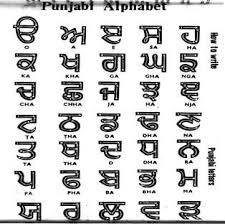 Punjabi Alphabet
ੳ ਅ ੲ ਸ ਹ
O A E SA HA
ਕ ਖ ਗ ਘ ਙ
KA KHA GA GHA NGA
ਚ ਛ ਜ ਝ ਞ
CHA JA NJA
ਟ ਠ ਡ ਢ ਣ
TA THA DHA
ਤ ਥ ਦ ਧ ਨ
TA THA DHA
ਪ ਫ ਬ ਭ ਮ
PA FA BA BHA MA
ਯ ਰ ਲ ਵ ੜ
How to write
Punjabi letters